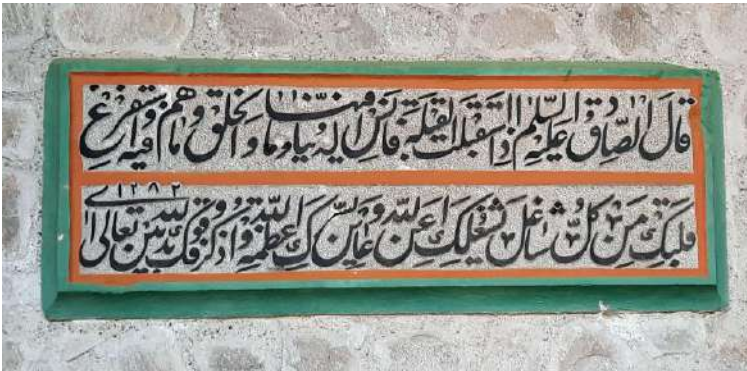 قال الصادق علیه السلم اذا استقبلت القبلة فانس الدنیا و ما فیها و الخلق و ما هم فیه و استفرغ
قلبک من کل شاغل یشغلک عن الله و عاین بسرک عظمة الله و اذکر وقوفک بین یدی الله تعالی ۱۲۸۲